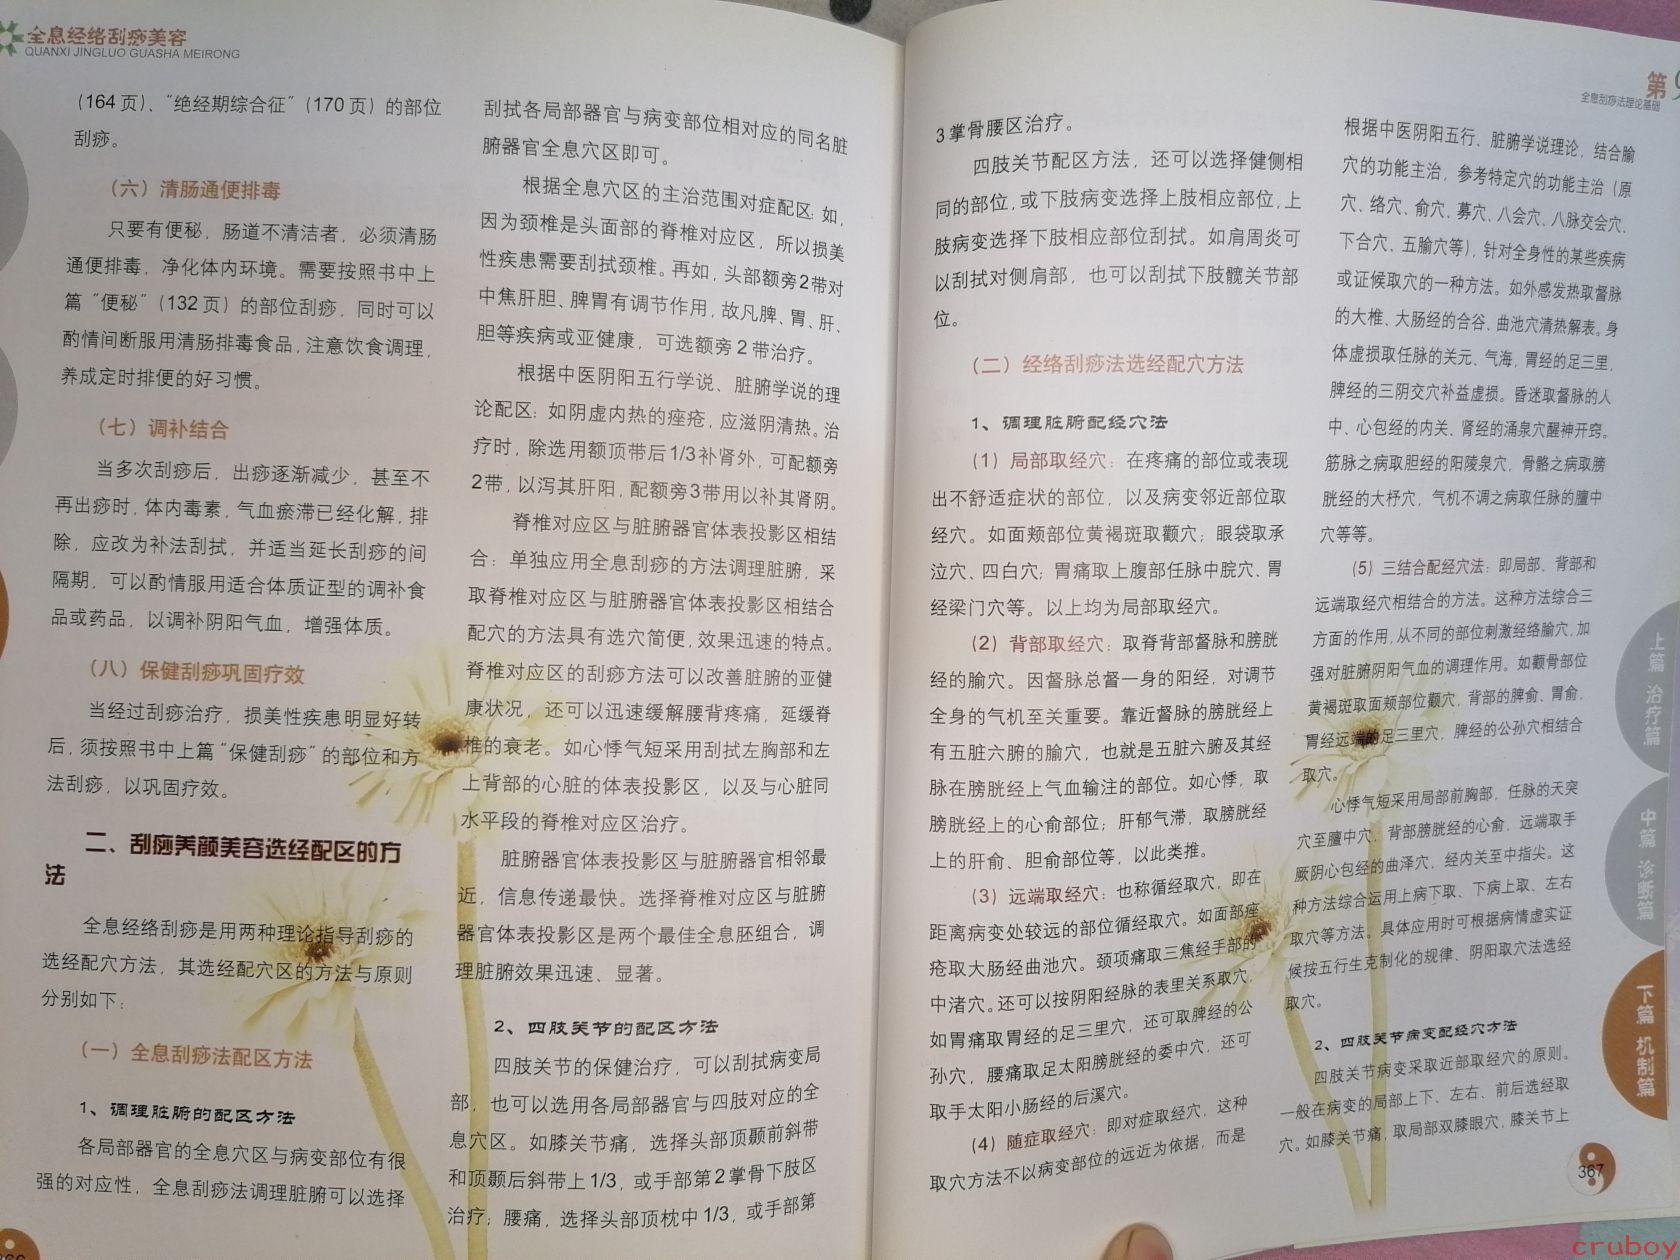 全息经络刮痧美容
QUANXI JINGLUO GUASHA MEIRONG
（164 页）、“绝经期综合征”（170 页）的部位
刮痧。
（六）清肠通便排毒
只要有便秘，肠道不清洁者，必须清肠
通便排毒，净化体内环境。需要按照书中上
篇“便秘”（132 页）的部位刮痧，同时可以
酌情间断服用清肠排毒食品，注意饮食调理，
养成定时排便的好习惯。
（七）调补结合
当多次刮痧后，出痧逐渐减少，甚至不
再出痧时，体内毒素，气血瘀滞已经化解，排
除，应改为补法刮拭，并适当延长刮痧的间
隔期，可以酌情服用适合体质证型的调补食
品或药品，以调补阴阳气血，增强体质。
（八）保健刮痧巩固疗效
当经过刮痧治疗，损美性疾患明显好转
后，须按照书中上篇“保健刮痧”的部位和方
法刮痧，以巩固疗效。
二、刮痧养颜美容选经配区的方
法
全息经络刮痧是用两种理论指导刮痧的
选经配穴方法，其选经配穴区的方法与原则
分别如下：
（一）全息刮痧法配区方法
1、调理脏腑的配区方法
各局部器官的全息穴区与病变部位有很
强的对应性，全息刮痧法调理脏腑可以选择
刮拭各局部器官与病变部位相对应的同名脏
腑器官全息穴区即可。
根据全息穴区的主治范围对症配区：如，
因为颈椎是头面部的脊椎对应区，所以损美
性疾患需要刮拭颈椎。再如，头部额旁2带对
中焦肝胆、脾胃有调节作用，故凡脾、胃、肝、
胆等疾病或亚健康，可选额旁 2 带治疗。
根据中医阴阳五行学说、脏腑学说的理
论配区：如阴虚内热的痤疮，应滋阴清热。治
疗时，除选用额顶带后1/3补肾外，可配额旁
2带，以泻其肝阳，配额旁3带用以补其肾阴。
脊椎对应区与脏腑器官体表投影区相结
合：单独应用全息刮痧的方法调理脏腑，采
取脊椎对应区与脏腑器官体表投影区相结合
配穴的方法具有选穴简便，效果迅速的特点。
脊椎对应区的刮痧方法可以改善脏腑的亚健
康状况，还可以迅速缓解腰背疼痛，延缓脊
椎的衰老。如心悸气短采用刮拭左胸部和左
上背部的心脏的体表投影区，以及与心脏同
水平段的脊椎对应区治疗。
脏腑器官体表投影区与脏腑器官相邻最
近，信息传递最快。选择脊椎对应区与脏腑
器官体表投影区是两个最佳全息胚组合，调
理脏腑效果迅速、显著。
2、四肢关节的配区方法
四肢关节的保健治疗，可以刮拭病变局
部，也可以选用各局部器官与四肢对应的全
息穴区。如膝关节痛，选择头部顶颞前斜带
和顶颞后斜带上1/3，或手部第2掌骨下肢区
治疗；腰痛，选择头部顶枕中1/3，或手部第
3 掌骨腰区治疗。
四肢关节配区方法，还可以选择健侧相
同的部位，或下肢病变选择上肢相应部位，上
肢病变选择下肢相应部位刮拭。如肩周炎可
以刮拭对侧肩部，也可以刮拭下肢髋关节部
位。
（二）经络刮痧法选经配穴方法
1、调理脏腑配经穴法
（1）局部取经穴：在疼痛的部位或表现
出不舒适症状的部位，以及病变邻近部位取
经穴。如面颊部位黄褐斑取颧穴；眼袋取承
泣穴、四白穴；胃痛取上腹部任脉中脘穴、胃
经梁门穴等。以上均为局部取经穴。
（2）背部取经穴：取脊背部督脉和膀胱
经的腧穴。因督脉总督一身的阳经，对调节
全身的气机至关重要。靠近督脉的膀胱经上
有五脏六腑的腧穴，也就是五脏六腑及其经
脉在膀胱经上气血输注的部位。如心悸，取
膀胱经上的心俞部位；肝郁气滞，取膀胱经
上的肝俞、胆俞部位等，以此类推。
（3）远端取经穴：也称循经取穴，即在
距离病变处较远的部位循经取穴。如面部痤
疮取大肠经曲池穴。颈项痛取三焦经手部的
中渚穴。还可以按阴阳经脉的表里关系取穴，
如胃痛取胃经的足三里穴，还可取脾经的公
孙穴，腰痛取足太阳膀胱经的委中穴，还可
取手太阳小肠经的后溪穴。
（4）随症取经穴：即对症取经穴，这种
取穴方法不以病变部位的远近为依据，而是
第9
全息刮痧法理论基础
根据中医阴阳五行、脏腑学说理论，结合腧
穴的功能主治，参考特定穴的功能主治（原
穴、络穴、俞穴、募穴、八会穴、八脉交会穴、
下合穴、五腧穴等），针对全身性的某些疾病
或证候取穴的一种方法。如外感发热取督脉
的大椎、大肠经的合谷、曲池穴清热解表。身
体虚损取任脉的关元、气海，胃经的足三里，
脾经的三阴交穴补益虚损。昏迷取督脉的人
中、心包经的内关、肾经的涌泉穴醒神开窍。
筋脉之病取胆经的阳陵泉穴，骨骼之病取膀
胱经的大杼穴，气机不调之病取任脉的膻中
穴等等。
（5）三结合配经穴法：即局部、背部和
远端取经穴相结合的方法。这种方法综合三
方面的作用，从不同的部位刺激经络腧穴，加
强对脏腑阴阳气血的调理作用。如颧骨部位
黄褐斑取面颊部位颧穴，背部的脾俞、胃俞，
胃经远端的足三里穴，脾经的公孙穴相结合
取穴。
心悸气短采用局部前胸部，任脉的天突
穴至膻中穴，背部膀胱经的心俞，远端取手
厥阴心包经的曲泽穴，经内关至中指尖。这
种方法综合运用上病下取、下病上取、左右
取穴等方法。具体应用时可根据病情虚实证
候按五行生克制化的规律、阴阳取穴法选经
取穴。
2、四肢关节病变配经穴方法
四肢关节病变采取近部取经穴的原则。
一般在病变的局部上下、左右、前后选经取
穴。如膝关节痛，取局部双膝眼穴，膝关节上
上篇 治疗篇
中篇 诊断篇
下篇 机制篇
367
cruboy